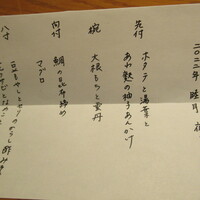 二〇二二年 睦月
先付
ホタテと湯葉と
あわ麩の柚子あんかけ
椀
大根もちと雲丹
向付
鯛の昆布締め
マグロ
八寸